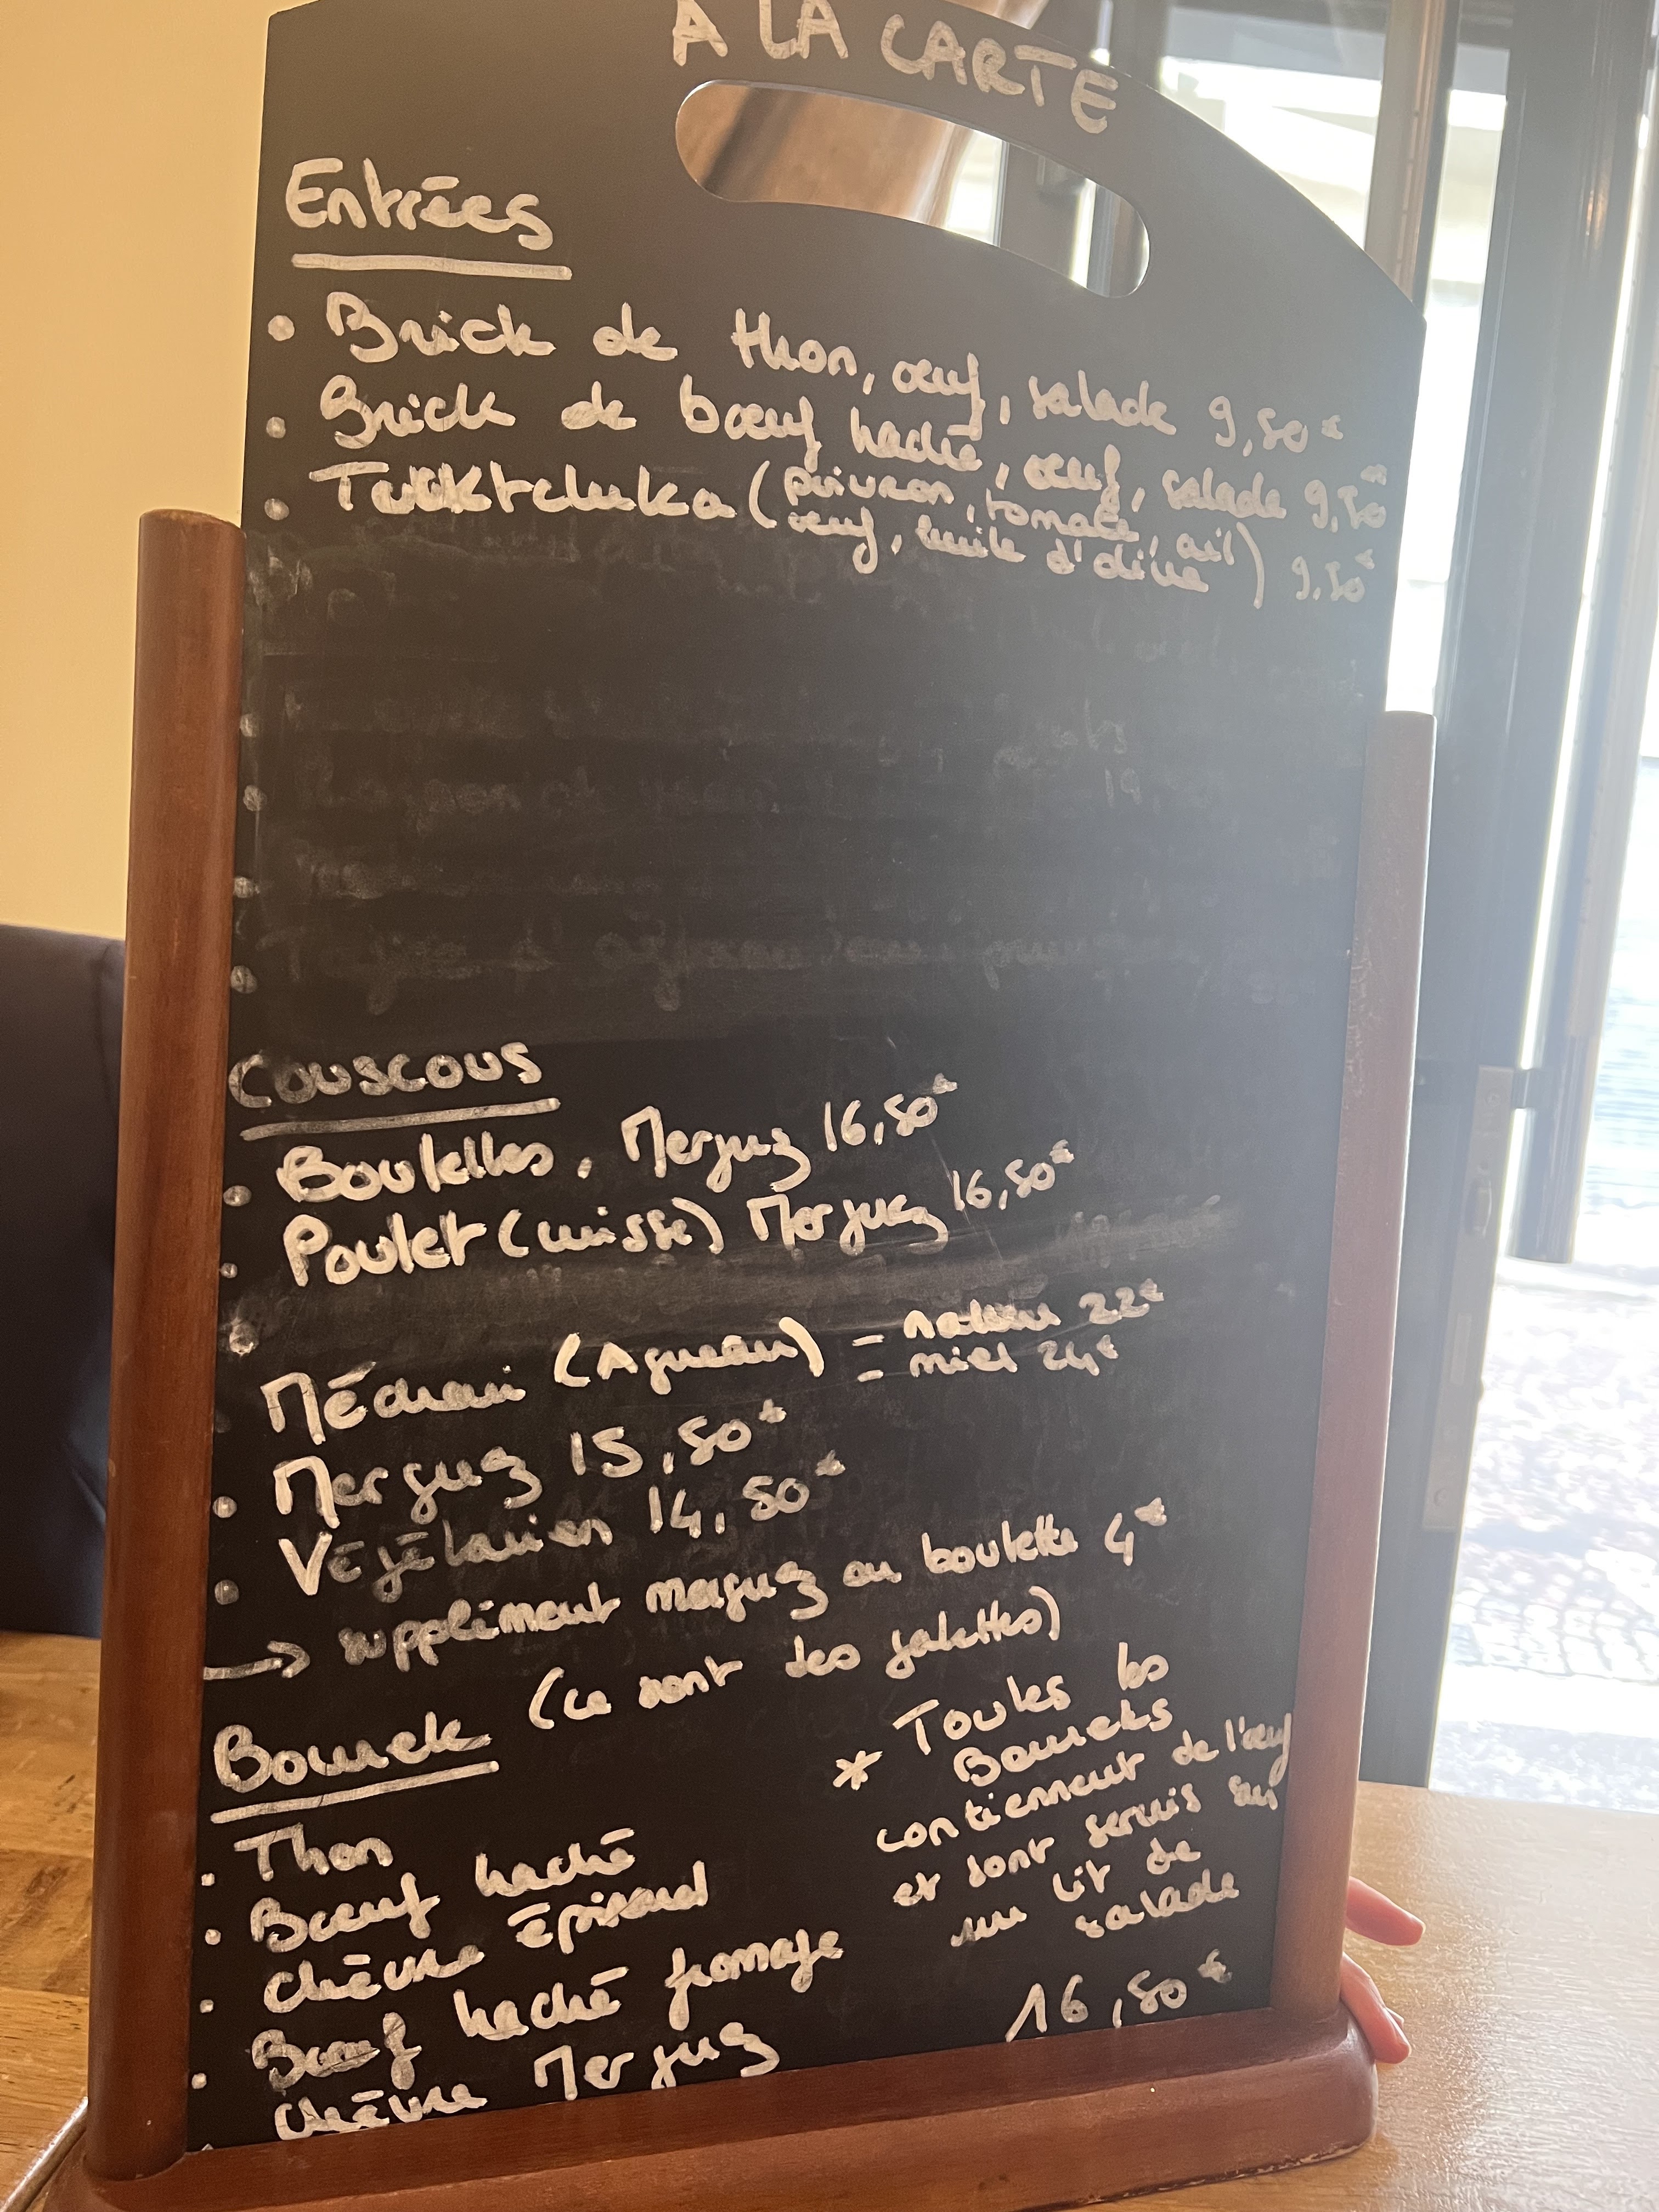 A LA CARTE
Entrées
• Brick de thon, œuf, salade 9,50€
• Brick de bœuf haché, œuf, salade 9,50€
• Tchuka (poivron, tomate, ail
œuf, huile d'olive) 9,50€
Couscous
• Boulettes, Merguez 16,50€
• Poulet (cuisse) Merguez 16,50€
Méchoui (Agneau) - nature 22€
- miel 24€
• Merguez 15,50€
• Végétarien 14,50€
→ supplément merguez ou boulette 4€
Bourek (ce sont des galettes)
• Thon
• Bœuf haché
• Chèvre épinard
• Bœuf haché fromage
Chèvre Merguez
* Toutes les
Boureks
contiennent de l'œuf
et sont servis sur
un lit de
salade
16,50€